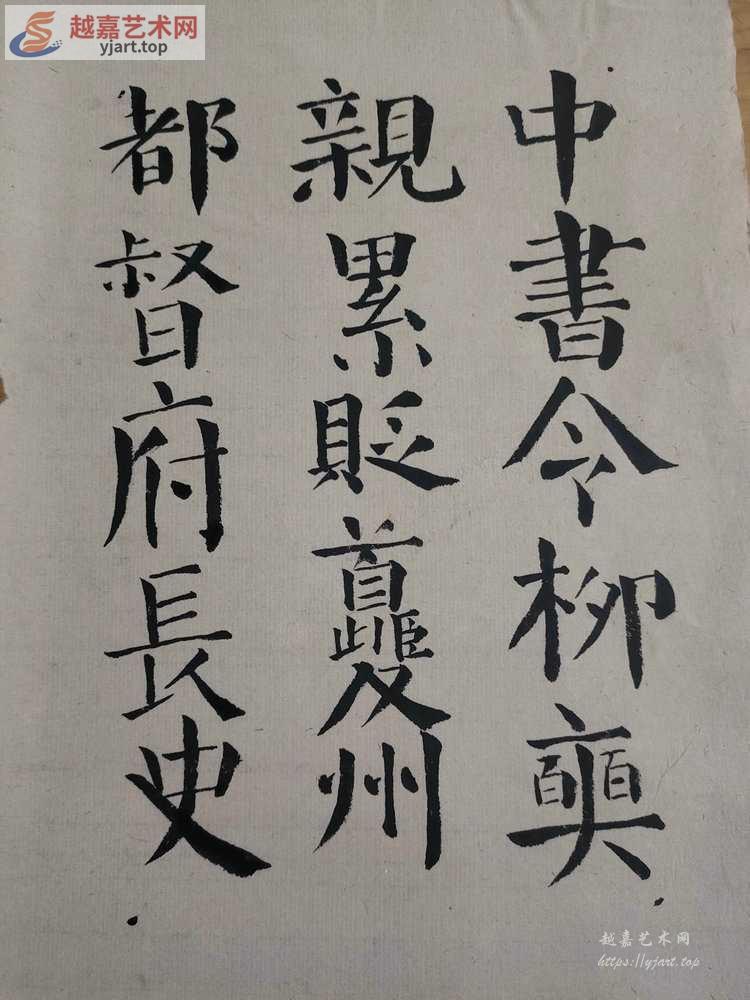 越嘉艺术网
yjart.top
中書令柳奭
親累貶夔州
都督府長史
越嘉艺术网
https://yjart.top